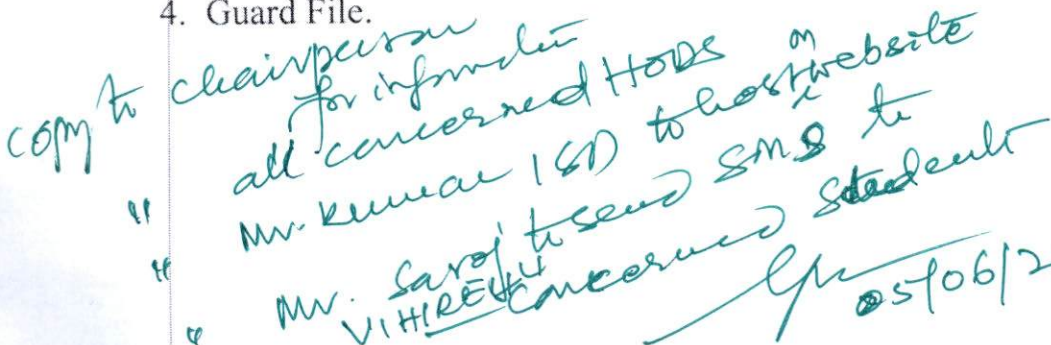 4. Guard File.
copy to chairperson for information
" all concerned HODS
" Mr. Kumar ISD to host on website
" Mr. Saroj to send SMS to
concerned student
05/06/2